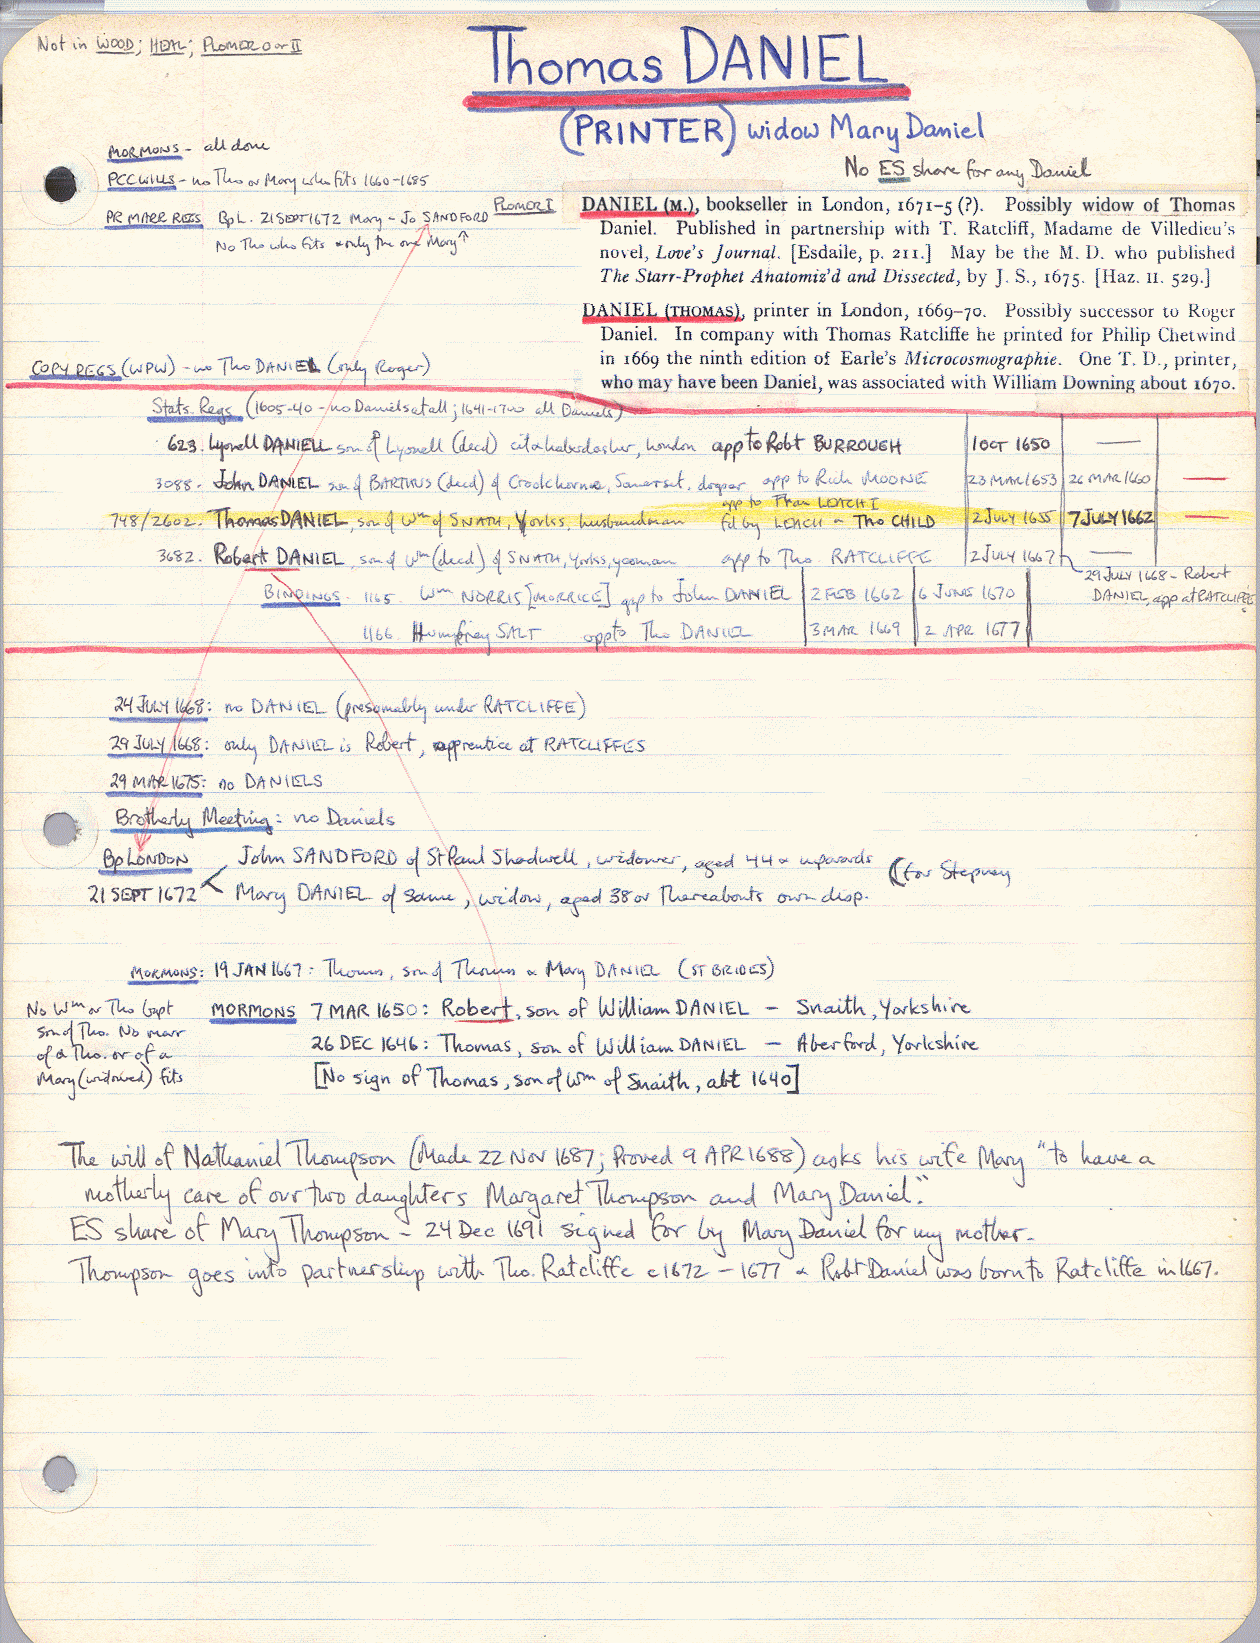 Not in WOOD; HEAL; PLOMER 0 or II
Thomas DANIEL
(PRINTER) widow Mary Daniel
No ES share for any Daniel
MORMONS - all done
PCC WILLS - no Tho or Mary who fits 1660-1685
PR MARR REGS BpL. 21 SEPT 1672 Mary - Jo SANDFORD
No Tho who fits & only the one Mary ↑
PLOMER I
DANIEL (M.), bookseller in London, 1671-5 (?). Possibly widow of Thomas
Daniel. Published in partnership with T. Ratcliff, Madame de Villedieu's
novel, Love's Journal. [Esdaile, p. 211.] May be the M. D. who published
The Starr-Prophet Anatomiz'd and Dissected, by J. S., 1675. [Haz. II. 529.]
DANIEL (THOMAS), printer in London, 1669-70. Possibly successor to Roger
Daniel. In company with Thomas Ratcliffe he printed for Philip Chetwind
in 1669 the ninth edition of Earle's Microcosmographie. One T. D., printer,
who may have been Daniel, was associated with William Downing about 1670.
COPY REGS (WPW) - no Tho DANIEL (only Roger)
Stats. Regs (1605-40 - no Daniels at all; 1641-1700 all Daniels)
623. Lyonell DANIELL son of Lyonell (decd) cit & haberdasher, London app to Robt BURROUGH 1 OCT 1650 —
3088. John DANIEL son of BARTHUS (decd) of Crookhorne, Somerset, draper app to Rich MOONE 23 MAR 1653 26 MAR 1660 —
app to Fran LEACH I
748/2602. Thomas DANIEL, son of Wm of SNATH, Yorks, husbandman fd by LEACH & Tho CHILD 2 JULY 1655 7 JULY 1662 —
3682. Robert DANIEL, son of Wm (decd) of SNATH, Yorks, yeoman app to Tho RATCLIFFE 2 JULY 1667 —
29 JULY 1668 - Robert
DANIEL, app at RATCLIFFES
BINDINGS. 1165. Wm NORRIS [MORRICE] app to John DANIEL 2 FEB 1662 6 JUNE 1670
1166. Humfrey SALT app to Tho DANIEL 3 MAR 1669 2 APR 1677
24 JULY 1668: no DANIEL (presumably under RATCLIFFE)
29 JULY 1668: only DANIEL is Robert, apprentice at RATCLIFFES
29 MAR 1675: no DANIELS
Brotherly Meeting: no Daniels
Bp LONDON John SANDFORD of St Paul Shadwell, widower, aged 44 & upwards (for Stepney
21 SEPT 1672 < Mary DANIEL of same, widow, aged 38 or thereabouts own disp.
MORMONS: 19 JAN 1667: Thomas, son of Thomas & Mary DANIEL (ST BRIDES)
No Wm or Tho bapt
son of Tho. No marr
of a Tho. or of a
Mary (widowed) fits
MORMONS 7 MAR 1650: Robert, son of William DANIEL - Snaith, Yorkshire
26 DEC 1646: Thomas, son of William DANIEL - Aberford, Yorkshire
[No sign of Thomas, son of Wm of Snaith, abt 1640]
The will of Nathaniel Thompson (Made 22 Nov 1687; Proved 9 APR 1688) asks his wife Mary "to have a
motherly care of our two daughters Margaret Thompson and Mary Daniel."
ES share of Mary Thompson - 24 Dec 1691 signed for by Mary Daniel for my mother.
Thompson goes into partnership with Tho. Ratcliffe c1672 - 1677 & Robt Daniel was born to Ratcliffe in 1667.